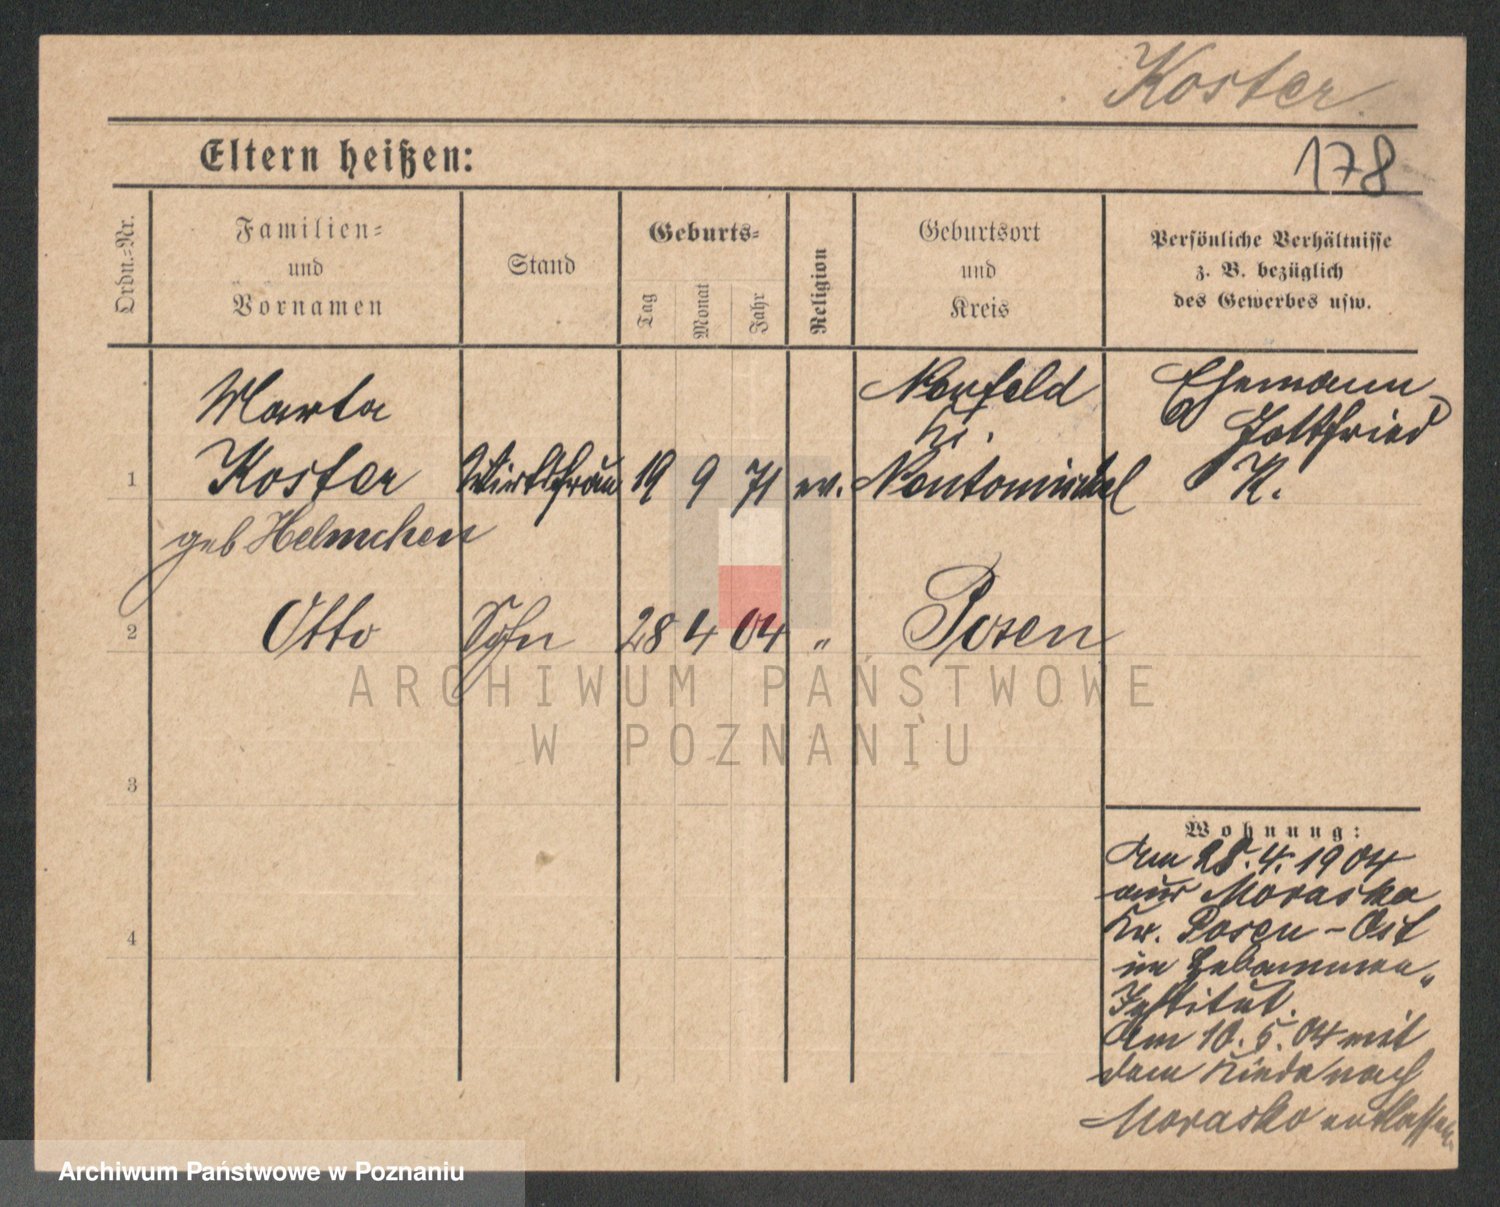 Koster
Eltern heißen:
178
Ordn.-Nr.
Familien-
und
Vornamen
Stand
Geburts-
Tag
Monat
Jahr
Religion
Geburtsort
und
Kreis
Persönliche Verhältnisse
z. B. bezüglich
des Gewerbes usw.
1
Marta
Koster
geb Helmchen
Wirtsfrau
19 9 71
ev.
Neufeld
Kr.
Neutomischel
Ehemann
Gottfried
K.
2
Otto
Sohn
28 4 04
"
Posen
3
4
Wohnung:
Am 28.4.1904
aus Moraska
Kr. Posen-Ost
im Hebammen-
Institut.
Am 10.5.04 mit
dem Kinde nach
Morasko entlassen
ARCHIWUM PAŃSTWOWE
W POZNANIU
Archiwum Państwowe w Poznaniu